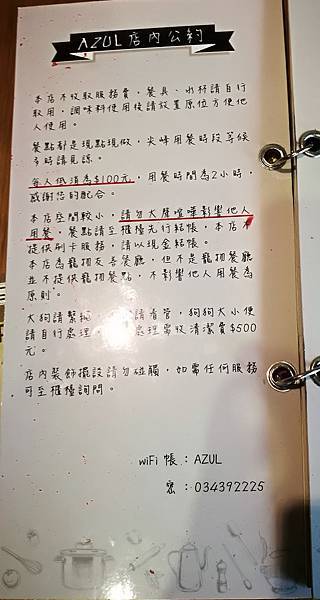 AZUL店內公約
本店不收取服務費,餐具、水杯請自行
取用,調味料使用後請放置原位方便他
人使用。
餐點都是現點現做,尖峰用餐時段等候
多時請見諒。
每人低消為$100元,用餐時間為2小時,
感謝您的配合。
本店空間較小,請勿大聲喧嘩影響他人
用餐,餐點請至櫃檯先行結帳,本店不
提供刷卡服務,請以現金結帳。
本店為寵物友善餐廳,但不是寵物餐廳
並不提供寵物餐點,不影響他人用餐為
原則。
大狗請繫 請看管,狗狗大小便
請自行處理 處理需收清潔費$500
元。
店內裝飾擺設請勿碰觸,如需任何服務
可至櫃檯詢問。
wiFi 帳:AZUL
密:034392225